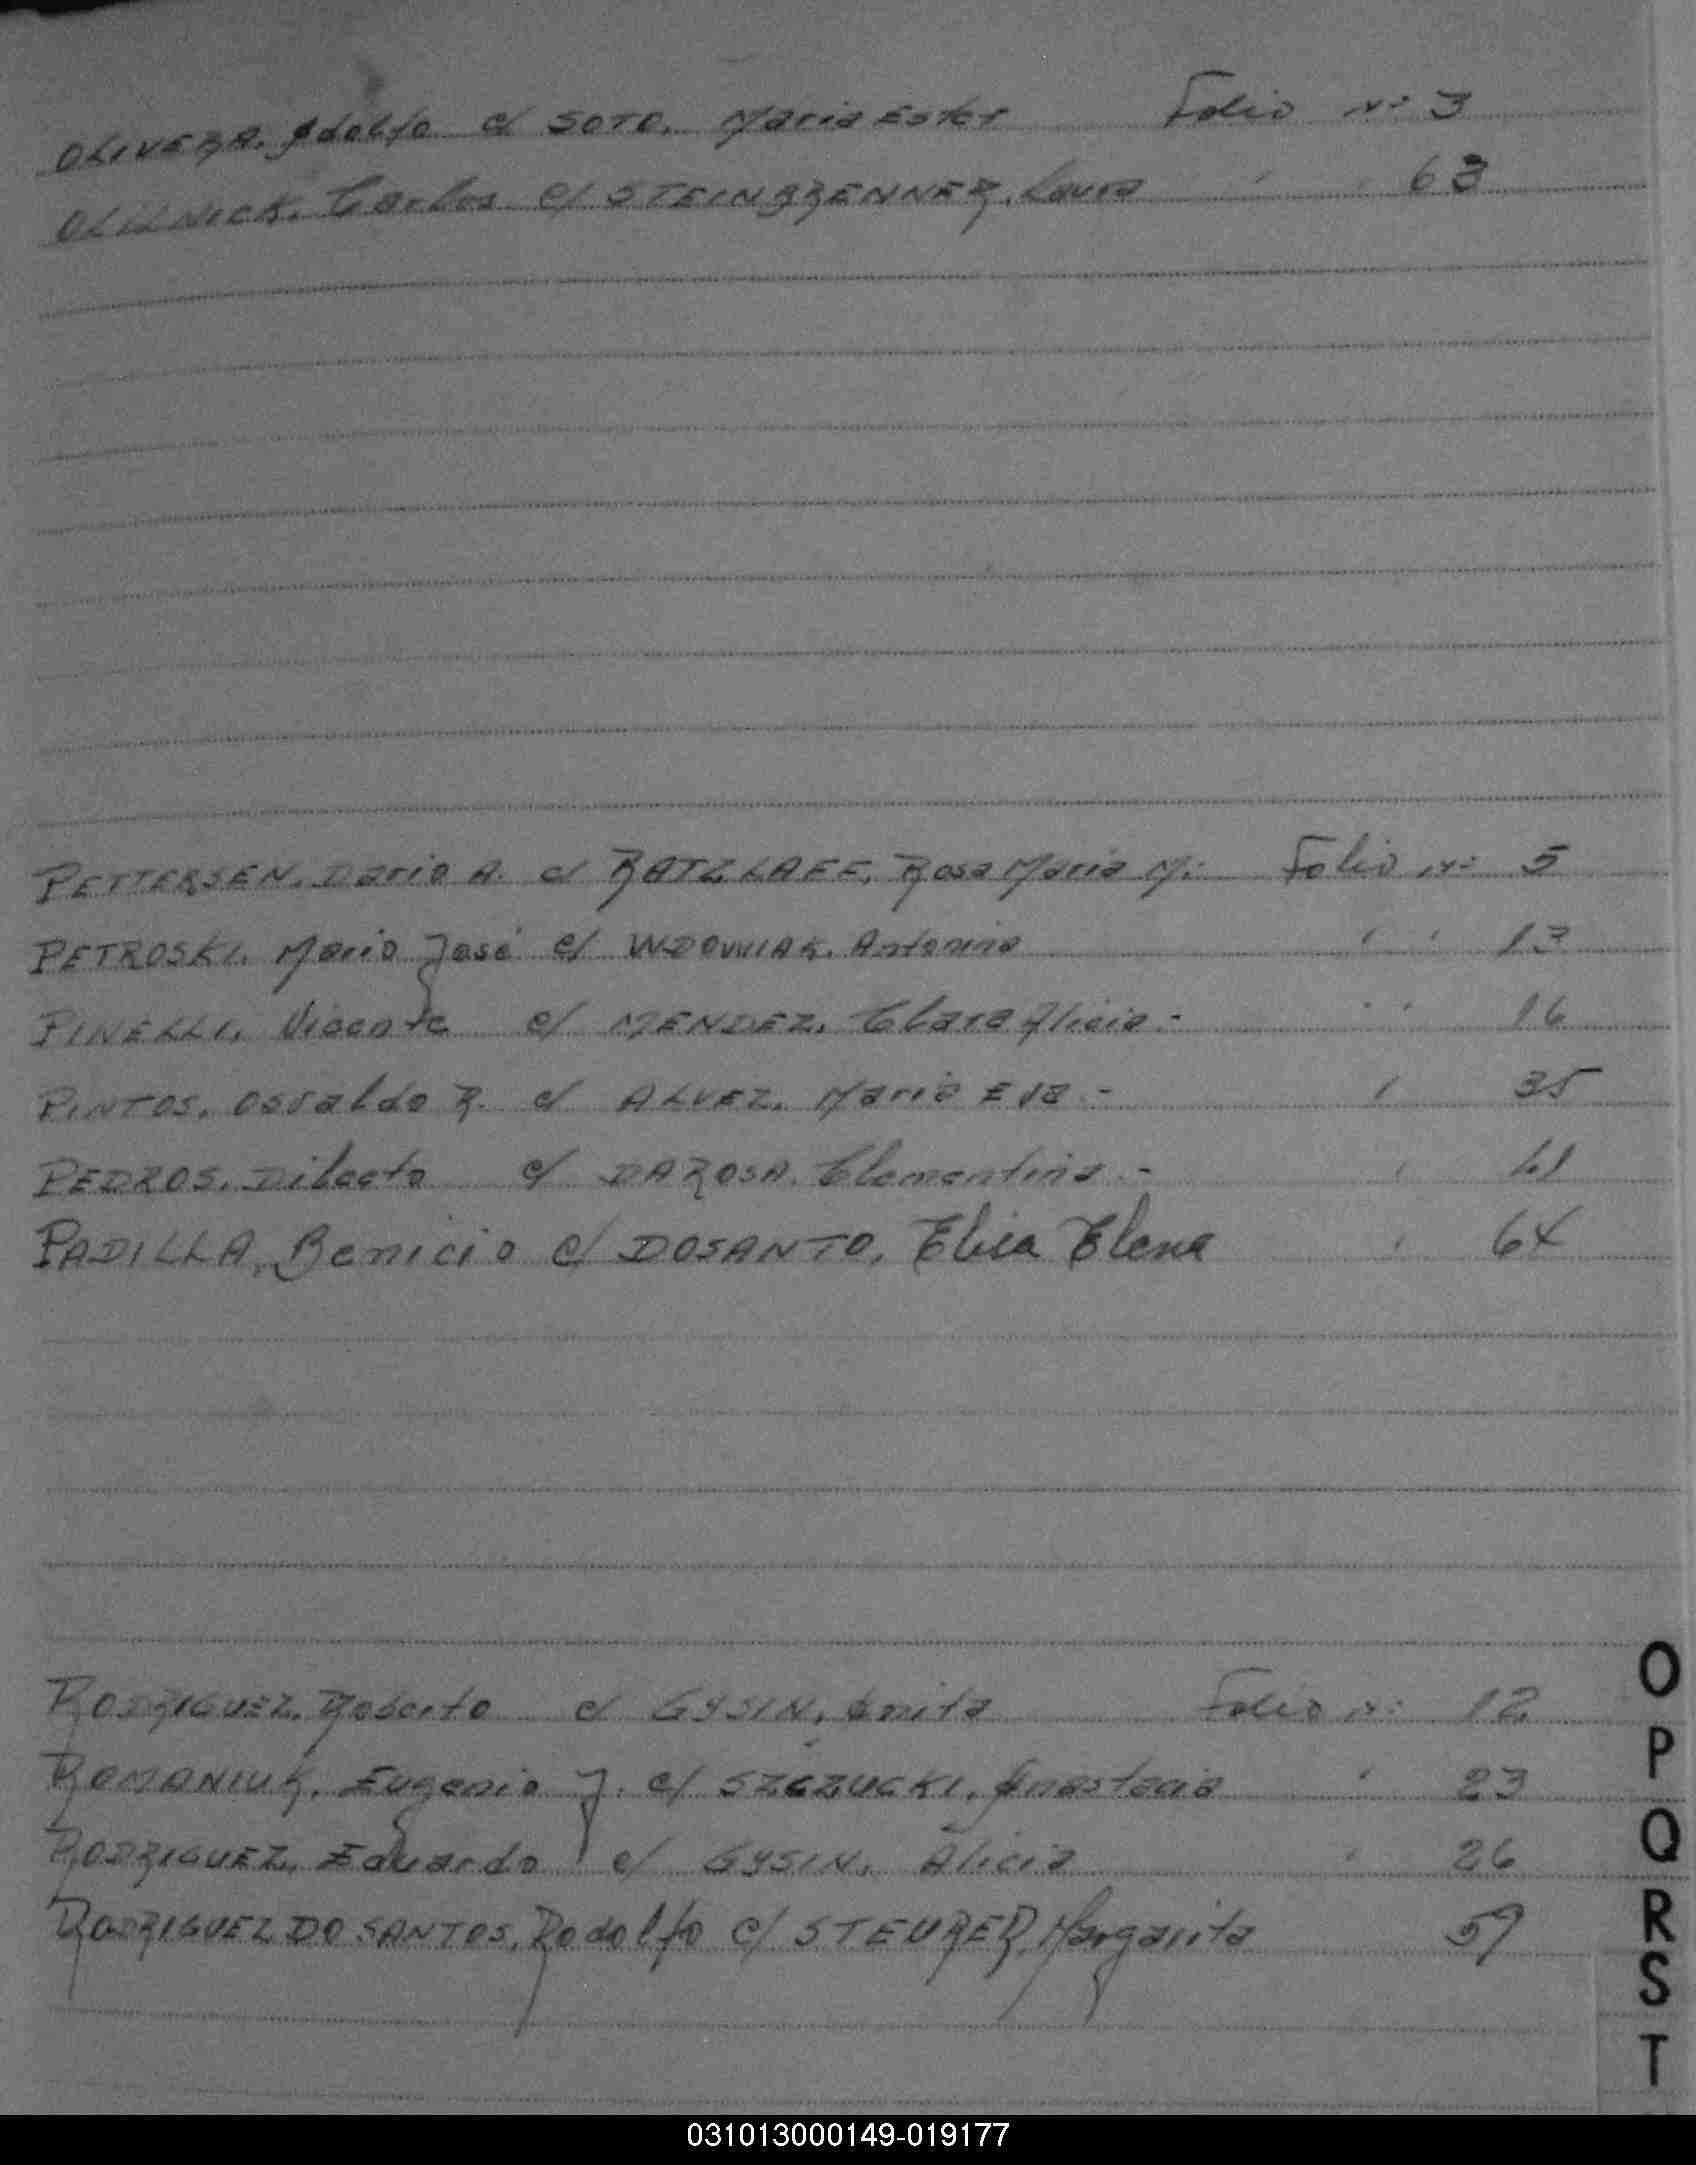 OLIVERA, Adolfo c/ SOTO, Maria Ester Folio Nº 3
OLILNICK, Carlos c/ STEINBRENNER, Laura " " 63
PETTERSEN, Dario A. c/ RATZLAFF, Rosa Maria M. Folio Nº 5
PETROSKI, Mario José c/ WDOWIAK, Antonina " " 13
PINELLI, Vicente c/ MENDEZ, Clara Alicia.- " " 16
PINTOS, Osvaldo R. c/ ALVEZ, Maria Eva.- " 35
PEDROS, Dilecto c/ DAROSA, Clementina.- "
PADILLA, Benicio c/ DOSANTO, Elisa Elena " 64
RODRIGUEZ, Roberto c/ GYSIN, Anita Folio Nº 12
ROMANIUK, Eugenio J. c/ SZCZUCKI, Anastacia " 23
RODRIGUEZ, Eduardo c/ GYSIN, Alicia " 26
RODRIGUEZ DO SANTOS, Rodolfo c/ STEURER, Margarita 59
O
P
Q
R
S
T
031013000149-019177